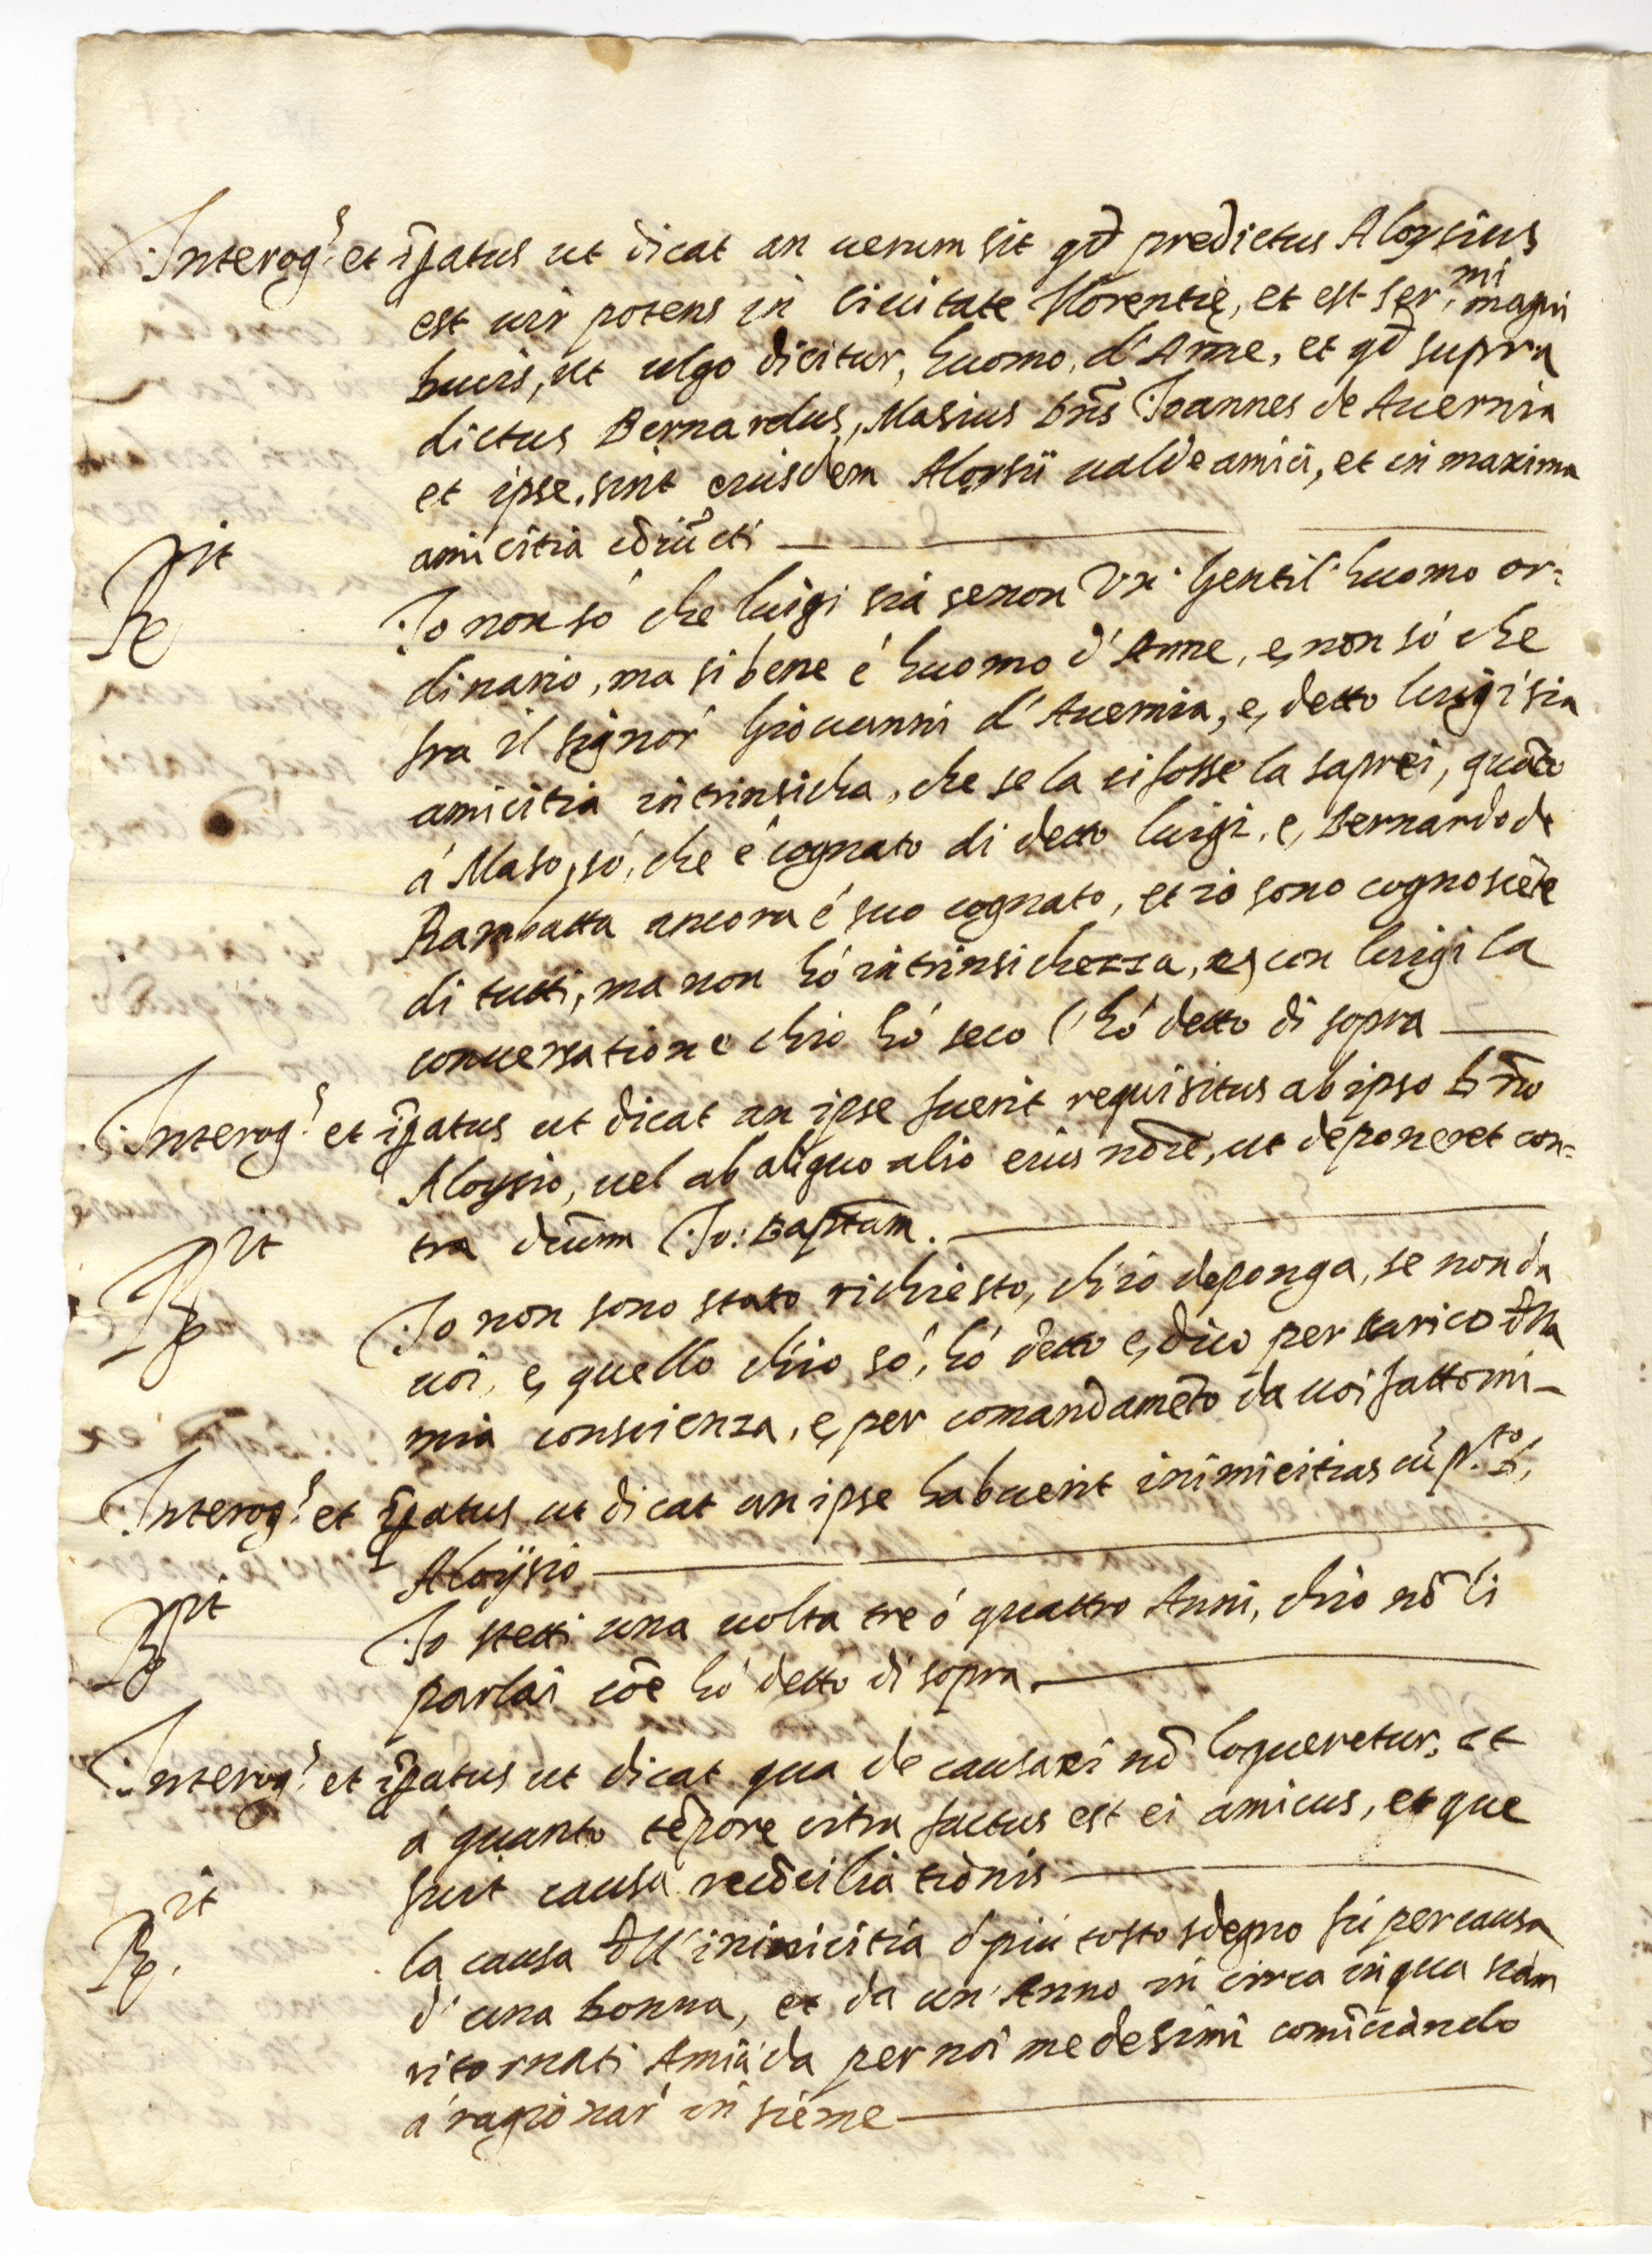 Interog.s et iŕatus ut dicat an uerum sit qđ predictus Aloysius
est uir potens in Ciuitate Florentię, et est ser.mi magni
Ducis, ut ulgo dicitur, huomo, d'Arme, et qđ supra
dictus Bernardus, Masius Dñs Joannes de Auernia
et ipse, sint eiusdem Aloysii ualde amici, et in maxima
amicitia cõiũcti
Rit
Io non só che luigi sia senon Un' Gentil' huomo or=
dinario, ma si bene é huomo d'Arme, e, non só che
fra il signor' Giouanni d'Auernia, e, detto luigi sia
amicitia intrinsicha, che se la ci fosse la saprei, quãto
á Maso, só, che é cognato di detto luigi, e, Bernardo de
Rambatta ancora é suo cognato, et io sono cognoscẽte
di tutti, ma non hó intrinsichezza, e, con luigi la
conuersatione chio hó seco l'hó detto di sopra
Interog.s et iŕatus ut dicat an ipse fuerit requisitus ab ipso Dño
Aloysio, uel ab aliquo alio eius nõie, ut deponeret con=
tra dictum Jo: Baptam.
Rit
Io non sono stato richiesto, ch'io deponga, se non da
uoi, e, quello ch'io só, hó detto e, dico per scarico đlla
mia conscienza, e, per comandamẽto da uoi fattomi
Interog.s et iŕatus ut dicat an ipse habuerit inimicitias cũ p.to D,
Aloÿsio
Rit
Io stetti una uolta tre ó quattro Anni, chio nõ li
parlai cõe hó detto di sopra
Interog.s et iŕatus ut dicat qua de causa ei nõ loqueretur, et
á quanto tẽpore citra factus est ei amicus, et que
fuit causa recõciliationis
Rit
la causa đll'inimicitia ó piu tosto sdegno fú per causa
d'una Donna, et da un'Anno in circa in qua siam
ritornati Amici da per noi medesimi comĩciando
á ragionar' insieme